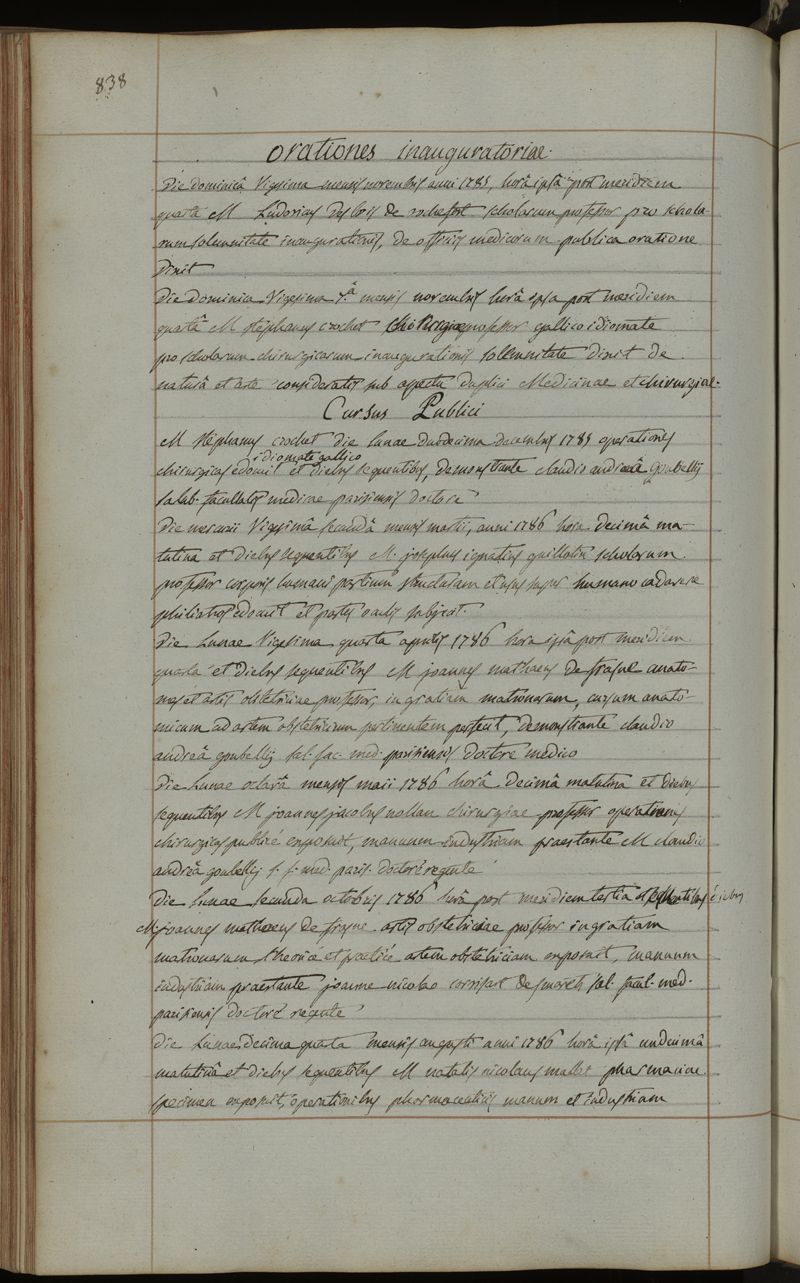 838
orationes inauguratoriae.
Die dominicâ Vigesima mensis novembris anni 1785, horâ ipsâ post meridiem
quartâ M Ludovicus de rochefort scholarum professor pro schola-
rum solemnitate inaugurationis, de officiis medicorum publica oratione
dixit
Die dominica Vigesima 7.â mensis novembris horâ ipsa post meridiem
quartâ M stephanus crochet chirurgiae professor gallico idiomate
pro scholarum chirurgicarum inaugurationis solemnitate dixit de
naturâ et arte consideratis sub aspectu duplici Medicinae et chirurgiae.
Cursus Publici
M stephanus crochet die lunae duodecima decembris 1785 operationes
idiomate gallico
chirurgicas edocuit et diebus sequentibus, demonstrante claudio andreâ Goubelly
salub. facultatis medicae parisiensis doctore
Die mercurii Vigesimâ secundâ mensis martii, anni 1786 hora decimâ ma-
tutina et diebus sequentibus M. josephus ignatius guillotin scholarum
professor corporis humani partium structuram et usus super humano cadavere
philiatros edocuit et partes oculis subjecit.
Die Lunae Vigesima quarta aprilis 1786 hora ipsâ post meridiem
quarta et diebus sequentibus M joannes mathaeus De frasne anato-
mes et artis obstetriciae professor, in gratiam matronarum, cursum anato-
micum ad artem obstetriciam pertinentem perfecit, demonstrante claudio
andreâ goubelly sal. fac. med. parisiensis doctore medico
Die Lunae octavâ mensis maii 1786 horâ decimâ matutina et diebus
sequentibus M joannes jacobus nollan chirurgiae professor operationes
chirurgicas publicè exposuit, manuum industriam praestante M claudio
andreâ goubelly s. f. med. paris. doctore regente
Die lunae secunda octobris 1786 horâ post meridiem tertia et sequentibus diebus
M. joannes mathaeus de frasne artis obstetriciae professor in gratiam
matronarum theoricè et practicè artem obstetriciam exposuit, manuum
industriam praestante joanne nicolao corvisart Desmarets sal. facul. med.
parisiensis doctore regente
Die Lunae decima quarta mensis augusti anni 1786 horâ ipsâ undecimâ
matutinâ et diebus sequentibus M natalis nicolaus mallet pharmaciae
specimen exposuit, operationibus pharmaceuticis manum et industriam